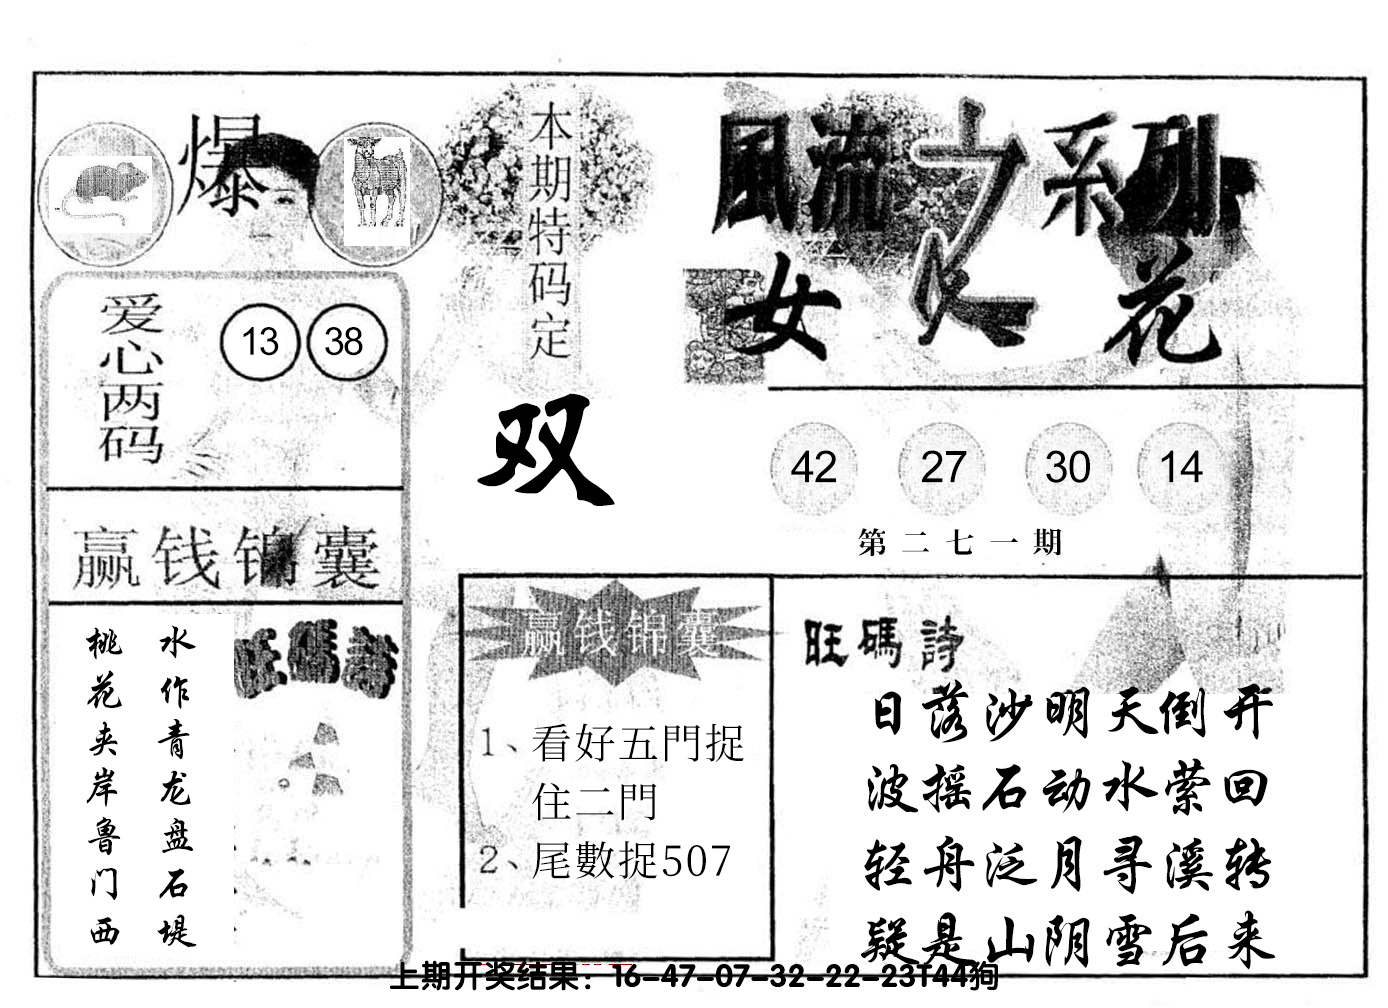 爆
本期特码定
双
風流之系列
女人花
爱心两码
13 38
42 27 30 14
第二七一期
赢钱锦囊
水作青龙盘石堤
桃花夹岸鲁门西
旺碼詩
赢钱锦囊
1、看好五門捉
住二門
2、尾數捉507
旺碼詩
日落沙明天倒开
波摇石动水萦回
轻舟泛月寻溪转
疑是山阴雪后来
上期开奖结果：16-47-07-32-22-23T44狗